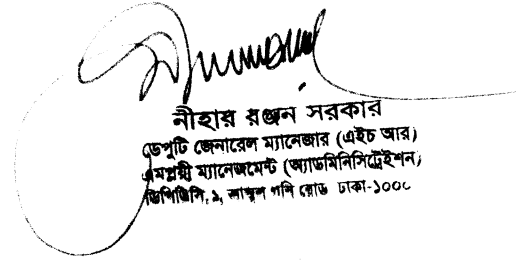 নীহার রঞ্জন সরকার
ডেপুটি জেনারেল ম্যানেজার (এইচ আর)
এমপ্লয়ী ম্যানেজমেন্ট (অ্যাডমিনিসিট্রেইশন)
ডিপিডিসি, ১, আব্দুল গনি রোড ঢাকা-১০০০